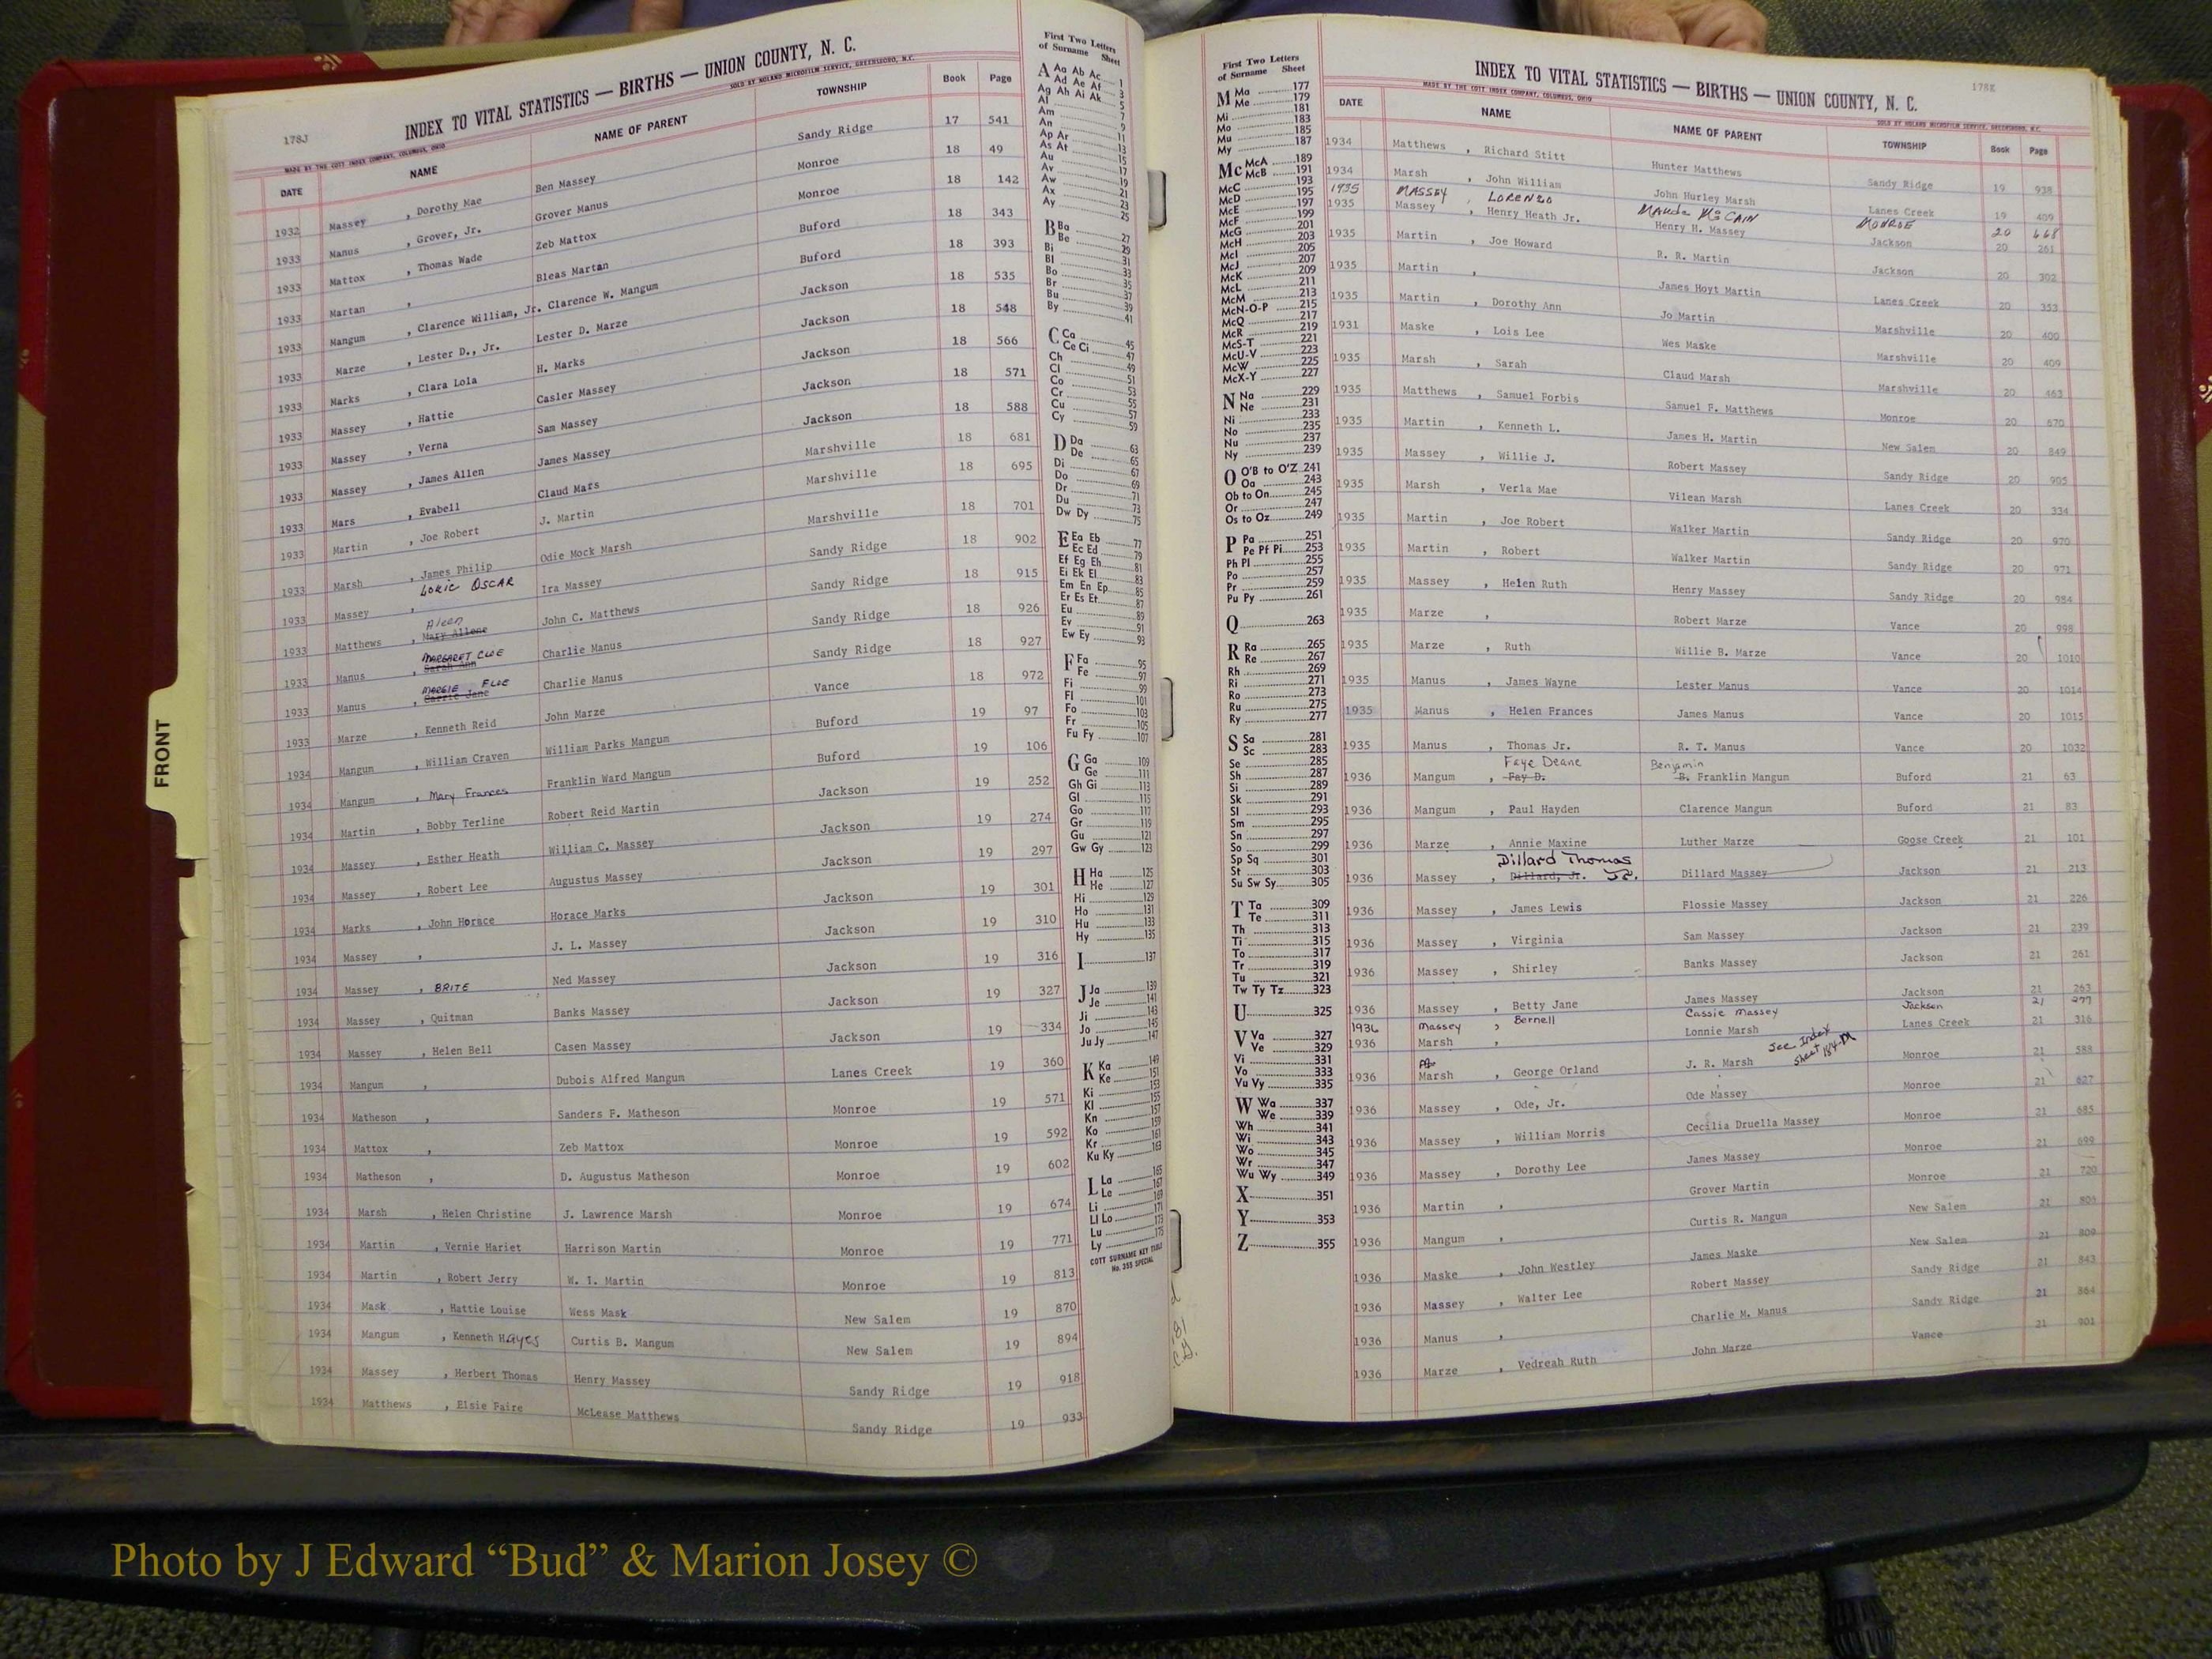 178J
INDEX TO VITAL STATISTICS — BIRTHS — UNION COUNTY, N. C.
MADE BY THE COTT INDEX COMPANY, COLUMBUS, OHIO SOLD BY NOLAND MICROFILM SERVICE, GREENSBORO, N.C.
DATE NAME NAME OF PARENT TOWNSHIP Book Page
1932 Massey , Dorothy Mae Ben Massey Sandy Ridge 17 541
1933 Manus , Grover, Jr. Grover Manus Monroe 18 49
1933 Mattox , Thomas Wade Zeb Mattox Monroe 18 142
1933 Martan , Bleas Martan Buford 18 343
1933 Mangum , Clarence William, Jr. Clarence W. Mangum Buford 18 393
1933 Marze , Lester D., Jr. Lester D. Marze Jackson 18 535
1933 Marks , Clara Lola H. Marks Jackson 18 548
1933 Massey , Hattie Casler Massey Jackson 18 566
1933 Massey , Verna Sam Massey Jackson 18 571
1933 Massey , James Allen James Massey Jackson 18 588
1933 Mars , Evabell Claud Mars Marshville 18 681
1933 Martin , Joe Robert J. Martin Marshville 18 695
1933 Marsh , James Philip Odie Mock Marsh Marshville 18 701
1933 Massey , Loric Oscar Ira Massey Sandy Ridge 18 902
Aleen
1933 Matthews , Mary Allene John C. Matthews Sandy Ridge 18 915
MARGARET CLOE
1933 Manus , Sarah Ann Charlie Manus Sandy Ridge 18 926
MARGIE FLOE
1933 Manus , Carrie Jane Charlie Manus Sandy Ridge 18 927
1933 Marze , Kenneth Reid John Marze Vance 18 972
1934 Mangum , William Craven William Parks Mangum Buford 19 97
1934 Mangum , Mary Frances Franklin Ward Mangum Buford 19 106
1934 Martin , Bobby Terline Robert Reid Martin Jackson 19 252
1934 Massey , Esther Heath William C. Massey Jackson 19 274
1934 Massey , Robert Lee Augustus Massey Jackson 19 297
1934 Marks , John Horace Horace Marks Jackson 19 301
1934 Massey , J. L. Massey Jackson 19 310
1934 Massey , BRITE Ned Massey Jackson 19 316
1934 Massey , Quitman Banks Massey Jackson 19 327
1934 Massey , Helen Bell Casen Massey Jackson 19 334
1934 Mangum , Dubois Alfred Mangum Lanes Creek 19 360
1934 Matheson , Sanders F. Matheson Monroe 19 571
1934 Mattox , Zeb Mattox Monroe 19 592
1934 Matheson , D. Augustus Matheson Monroe 19 602
1934 Marsh , Helen Christine J. Lawrence Marsh Monroe 19 674
1934 Martin , Vernie Hariet Harrison Martin Monroe 19 771
1934 Martin , Robert Jerry W. I. Martin Monroe 19 813
1934 Mask , Hattie Louise Wess Mask New Salem 19 870
1934 Mangum , Kenneth Hayes Curtis B. Mangum New Salem 19 894
1934 Massey , Herbert Thomas Henry Massey Sandy Ridge 19 918
1934 Matthews , Elsie Faire McLease Matthews Sandy Ridge 19 933
FRONT
First Two Letters
of Surname Sheet
A Aa Ab Ac 1
Ad Ae Af 3
Ag Ah Ai Ak 5
Al 7
Am 9
An 11
Ap Ar 13
As At 15
Au 17
Av 19
Aw 21
Ax 23
Ay 25
B Ba 27
Be 29
Bi 31
Bl 33
Bo 35
Br 37
Bu 39
By 41
C Ca 45
Ce Ci 47
Ch 49
Cl 51
Co 53
Cr 55
Cu 57
Cy 59
D Da 63
De 65
Di 67
Do 69
Dr 71
Du 73
Dw Dy 75
E Ea Eb 77
Ec Ed 79
Ef Eg Eh 81
Ei Ek El 83
Em En Ep 85
Er Es Et 87
Eu 89
Ev 91
Ew Ey 93
F Fa 95
Fe 97
Fi 99
Fl 101
Fo 103
Fr 105
Fu Fy 107
G Ga 109
Ge 111
Gh Gi 113
Gl 115
Go 117
Gr 119
Gu 121
Gw Gy 123
H Ha 125
He 127
Hi 129
Ho 131
Hu 133
Hy 135
I 137
J Ja 139
Je 141
Ji 143
Jo 145
Ju Jy 147
K Ka 149
Ke 151
Ki 153
Kl 155
Kn 157
Ko 159
Kr 161
Ku Ky 163
L La 165
Le 167
Li 169
Ll Lo 171
Lu 173
Ly 175
COTT SURNAME KEY TABLE
No. 355 SPECIAL
First Two Letters
of Surname Sheet
M Ma 177
Me 179
Mi 181
Mo 183
Mu 185
My 187
Mc McA 189
McB 191
McC 193
McD 195
McE 197
McF 199
McG 201
McH 203
McI 205
McJ 207
McK 209
McL 211
McM 213
McN-O-P 215
McQ 217
McR 219
McS-T 221
McU-V 223
McW 225
McX-Y 227
N Na 229
Ne 231
Ni 233
No 235
Nu 237
Ny 239
O O'B to O'Z 241
Oa 243
Ob to On 245
Or 247
Os to Oz 249
P Pa 251
Pe Pf Pi 253
Ph Pl 255
Po 257
Pr 259
Pu Py 261
Q 263
R Ra 265
Re 267
Rh 269
Ri 271
Ro 273
Ru 275
Ry 277
S Sa 281
Sc 283
Se 285
Sh 287
Si 289
Sk 291
Sl 293
Sm 295
Sn 297
So 299
Sp Sq 301
St 303
Su Sw Sy 305
T Ta 309
Te 311
Th 313
Ti 315
To 317
Tr 319
Tu 321
Tw Ty Tz 323
U 325
V Va 327
Ve 329
Vi 331
Vo 333
Vu Vy 335
W Wa 337
We 339
Wh 341
Wi 343
Wo 345
Wr 347
Wu Wy 349
X 351
Y 353
Z 355
178K
INDEX TO VITAL STATISTICS — BIRTHS — UNION COUNTY, N. C.
MADE BY THE COTT INDEX COMPANY, COLUMBUS, OHIO SOLD BY NOLAND MICROFILM SERVICE, GREENSBORO, N.C.
DATE NAME NAME OF PARENT TOWNSHIP Book Page
1934 Matthews , Richard Stitt Hunter Matthews Sandy Ridge 19 938
1934 Marsh , John William John Hurley Marsh Lanes Creek 19 409
1935 MASSEY , LORENZO Maude McCain MONROE 20 668
1935 Massey , Henry Heath Jr. Henry H. Massey Jackson 20 261
1935 Martin , Joe Howard R. R. Martin Jackson 20 302
1935 Martin , James Hoyt Martin Lanes Creek 20 353
1935 Martin , Dorothy Ann Jo Martin Marshville 20 400
1931 Maske , Lois Lee Wes Maske Marshville 20 409
1935 Marsh , Sarah Claud Marsh Marshville 20 463
1935 Matthews , Samuel Forbis Samuel F. Matthews Monroe 20 670
1935 Martin , Kenneth L. James H. Martin New Salem 20 849
1935 Massey , Willie J. Robert Massey Sandy Ridge 20 905
1935 Marsh , Verla Mae Vilean Marsh Lanes Creek 20 334
1935 Martin , Joe Robert Walker Martin Sandy Ridge 20 970
1935 Martin , Robert Walker Martin Sandy Ridge 20 971
1935 Massey , Helen Ruth Henry Massey Sandy Ridge 20 984
1935 Marze , Robert Marze Vance 20 998
1935 Marze , Ruth Willie B. Marze Vance 20 1010
1935 Manus , James Wayne Lester Manus Vance 20 1014
1935 Manus , Helen Frances James Manus Vance 20 1015
1935 Manus , Thomas Jr. R. T. Manus Vance 20 1032
Faye Deane Benjamin
1936 Mangum , Fay D. B. Franklin Mangum Buford 21 63
1936 Mangum , Paul Hayden Clarence Mangum Buford 21 83
1936 Marze , Annie Maxine Luther Marze Goose Creek 21 101
Dillard Thomas
1936 Massey , Dillard, Jr. Jr. Dillard Massey Jackson 21 213
1936 Massey , James Lewis Flossie Massey Jackson 21 226
1936 Massey , Virginia Sam Massey Jackson 21 239
1936 Massey , Shirley Banks Massey Jackson 21 261
1936 Massey , Betty Jane James Massey Jackson 21 263
1936 Massey , Bernell Cassie Massey Jackson 21 277
1936 Marsh , Lonnie Marsh Lanes Creek 21 316
See Index
Sheet 184-M
1936 Marsh , George Orland J. R. Marsh Monroe 21 588
1936 Massey , Ode, Jr. Ode Massey Monroe 21 627
1936 Massey , William Morris Cecilia Druella Massey Monroe 21 685
1936 Massey , Dorothy Lee James Massey Monroe 21 699
1936 Martin , Grover Martin Monroe 21 720
1936 Mangum , Curtis R. Mangum New Salem 21 804
1936 Maske , John Westley James Maske New Salem 21 809
1936 Massey , Walter Lee Robert Massey Sandy Ridge 21 843
1936 Manus , Charlie M. Manus Sandy Ridge 21 864
1936 Marze , Vedreah Ruth John Marze Vance 21 901
Photo by J Edward “Bud” & Marion Josey ©